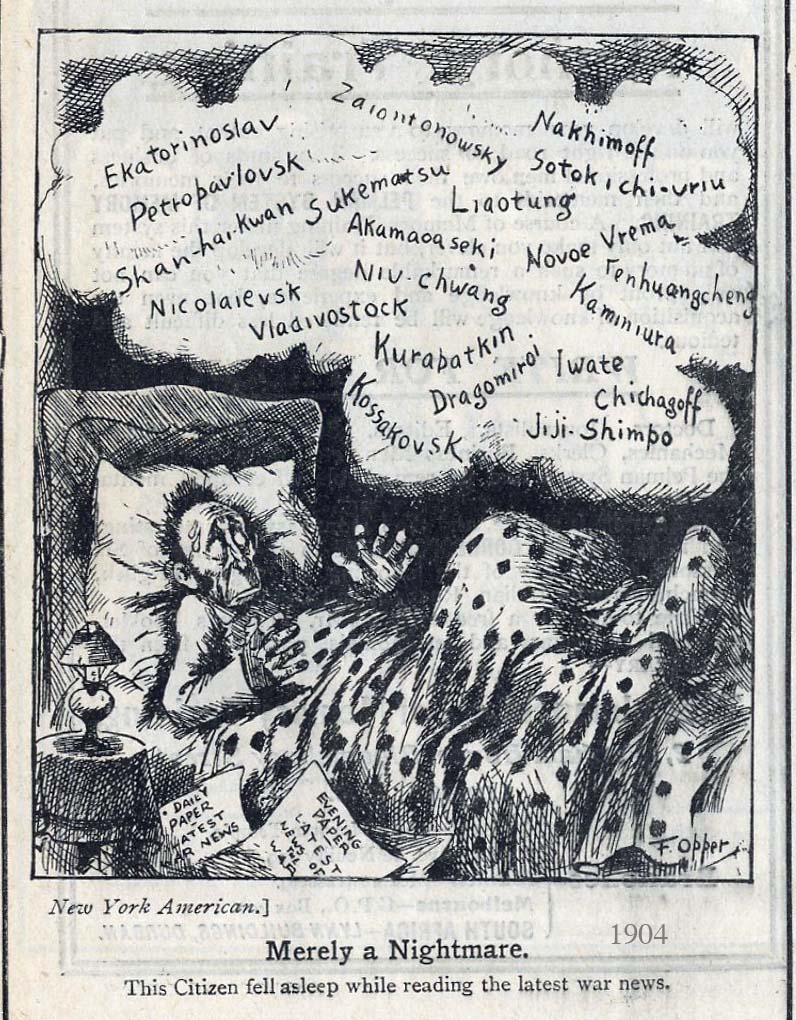 Zaiontonowsky
Nakhimoff
Ekatorinoslav
Sotokichi-uriu
Petropavlovsk
Sukematsu
Liaotung
Shan-hai-kwan
Akamaoaseki
Novoe Vrema
Niu-chwang
Fenhuangcheng
Nicolaievsk
Kaminiura
Vladivostock
Kurapatkin
Iwate
Dragomiroi
Chichagoff
Kossakovsk
Jiji-Shimpo
DAILY
PAPER
LATEST
WAR NEWS
EVENING
PAPER
LATEST
F. Opper
New York American.]
1904
Merely a Nightmare.
This Citizen fell asleep while reading the latest war news.